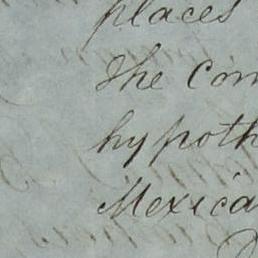 places
the Com
hypoth
Mexica